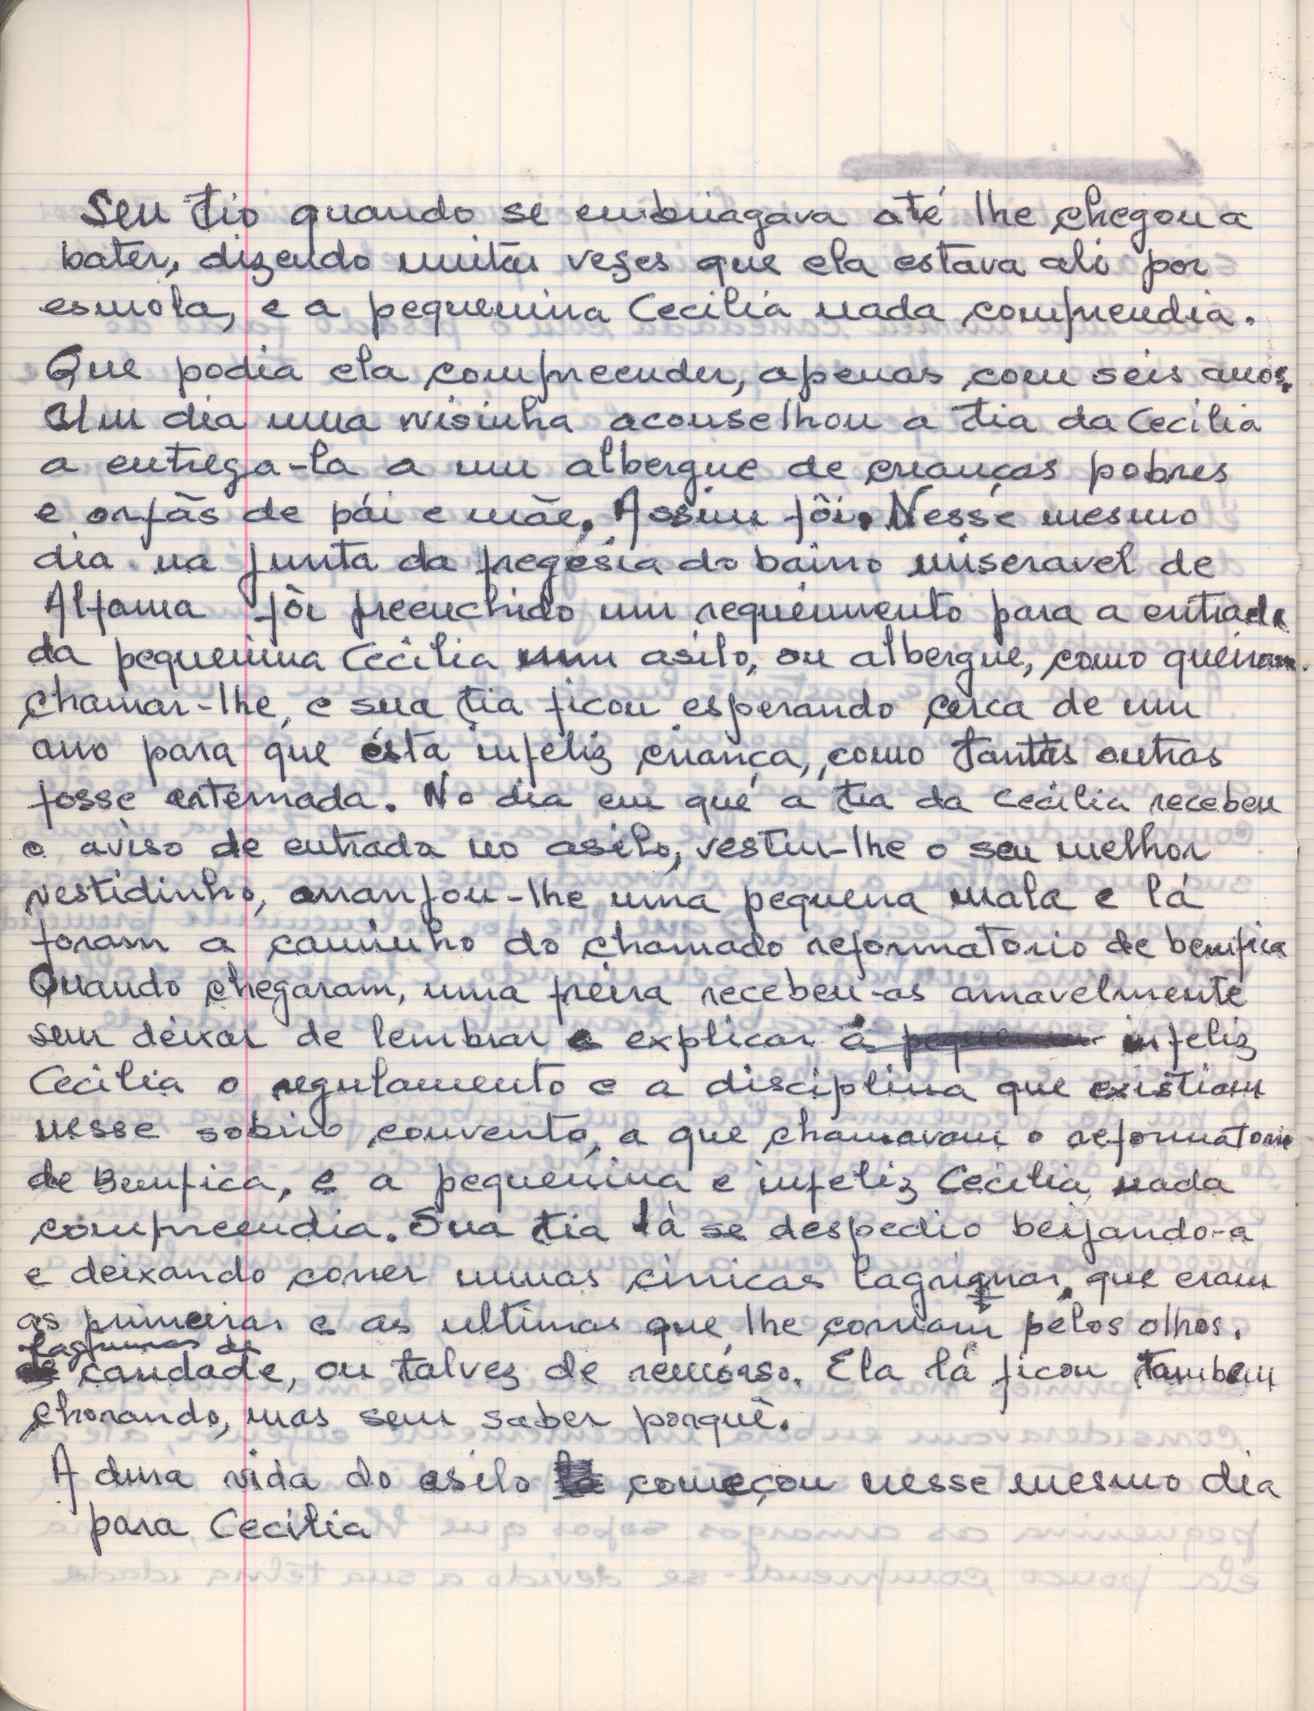 Seu tio quando se embriagava até lhe chegou a
bater, dizendo muitas vezes que ela estava ali por
esmola, e a pequenina Cecilia nada comprendia.
Que podia ela compreender, apenas com seis anos.
Um dia uma visinha aconselhou a tia da Cecilia
a entrega-la a um albergue de crianças pobres
e orfãs de pái e mãe. Assim fôi. Nesse mesmo
dia na junta da fregesia do bairro miseravel de
Alfama fôi preenchido um requerimento para a entrada
da pequenina Cecilia num asilo, ou albergue, como queiram
chamar-lhe, e sua tia ficou esperando cerca de um
ano para que ésta infeliz criança, como tantas outras
fosse internada. No dia em que a tia da Cecilia recebeu
o aviso de entrada no asilo, vestiu-lhe o seu melhor
vestidinho, arranjou-lhe uma pequena mala e lá
foram a caminho do chamado reformatorio de bemfica
Quando chegaram, uma freira recebeu-as amavelmente
sem deixar de lembrar e explicar á infeliz
Cecilia o regulamento e a disciplina que existiam
nesse sobrio convento, a que chamavam o reformatorio
de Bemfica, e a pequenina e infeliz Cecilia nada
compreendia. Sua tia lá se despedio beijando-a
e deixando correr umas cinicas lagrimas, que eram
as primeiras e as ultimas que lhe corriam pelos olhos.
lagrimas de
caudade, ou talvez de remórso. Ela lá ficou tambem
chorando, mas sem saber porquê.
A dura vida do asilo começou nesse mesmo dia
para Cecilia